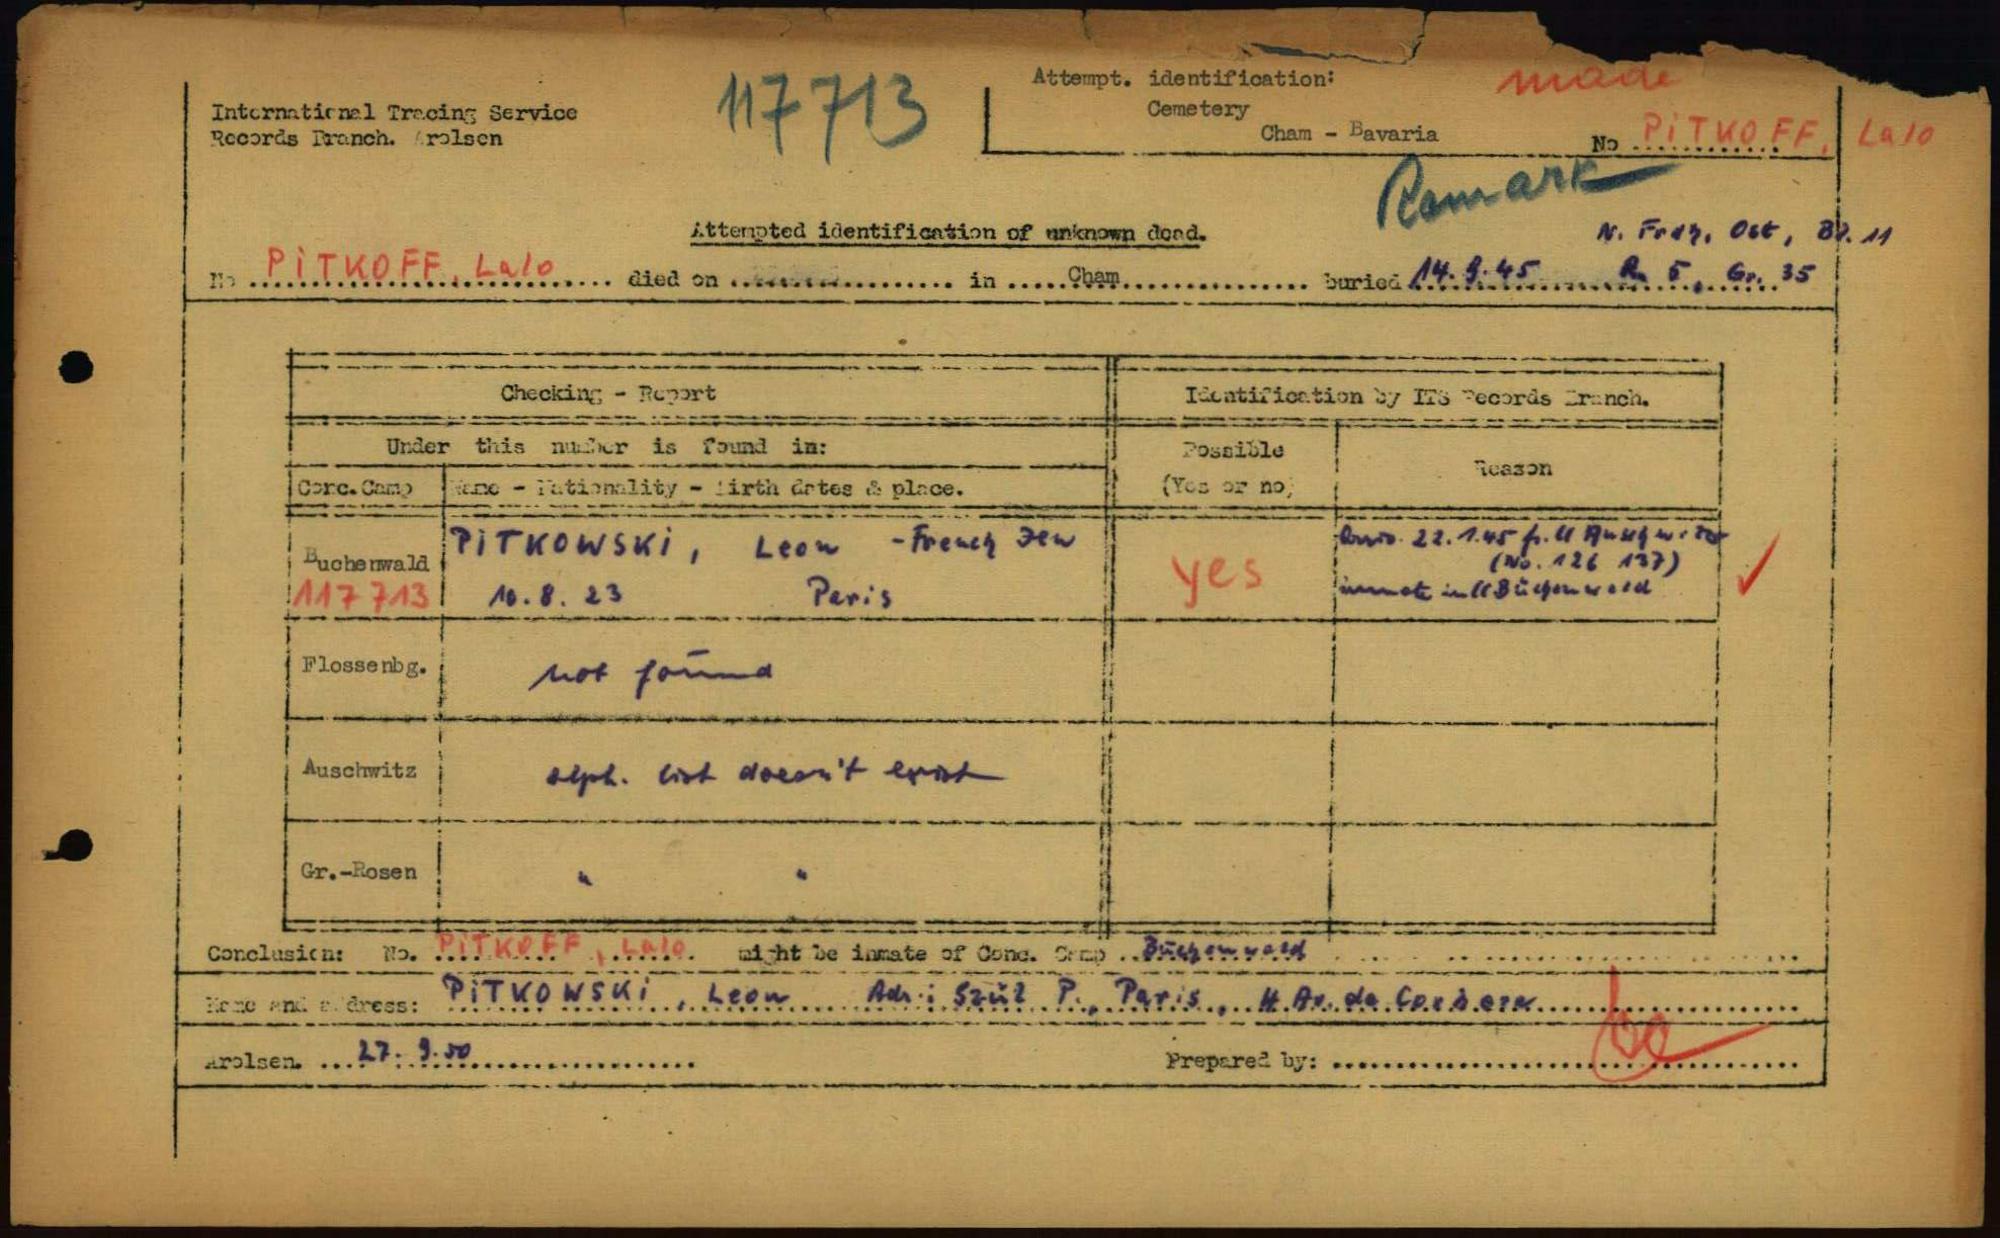 117713
Attempt. identification: made
International Tracing Service
Cemetery
Records Branch. Arolsen
Cham - Bavaria
No PiTKOFF, Lalo
Remark
Attempted identification of unknown dead.
N. Frdh. Ost, Bl. 11
No PiTKOFF, Lalo died on in Cham buried 14.9.45 R 5, Gr. 35
Checking - Report
Identification by ITS Records Branch.
Under this number is found in:
Possible
(Yes or no)
Reason
Conc.Camp
Name - Nationality - Birth dates & place.
Buchenwald
117713
PiTKOWSKi, Leon - French Jew
10.8.23 Paris
yes
22.1.45 fr. Cl Auschwitz
(No. 126 137)
inmate in Cl Buchenwald
Flossenbg.
not found
Auschwitz
alph. list doesn't exist
Gr.-Rosen
" "
Conclusion: No. PiTKOFF, Lalo might be inmate of Conc. Camp Buchenwald
Name and address: PiTKOWSKi, Leon Adr.: Szul P., Paris,
Arolsen. 27.9.50
Prepared by: